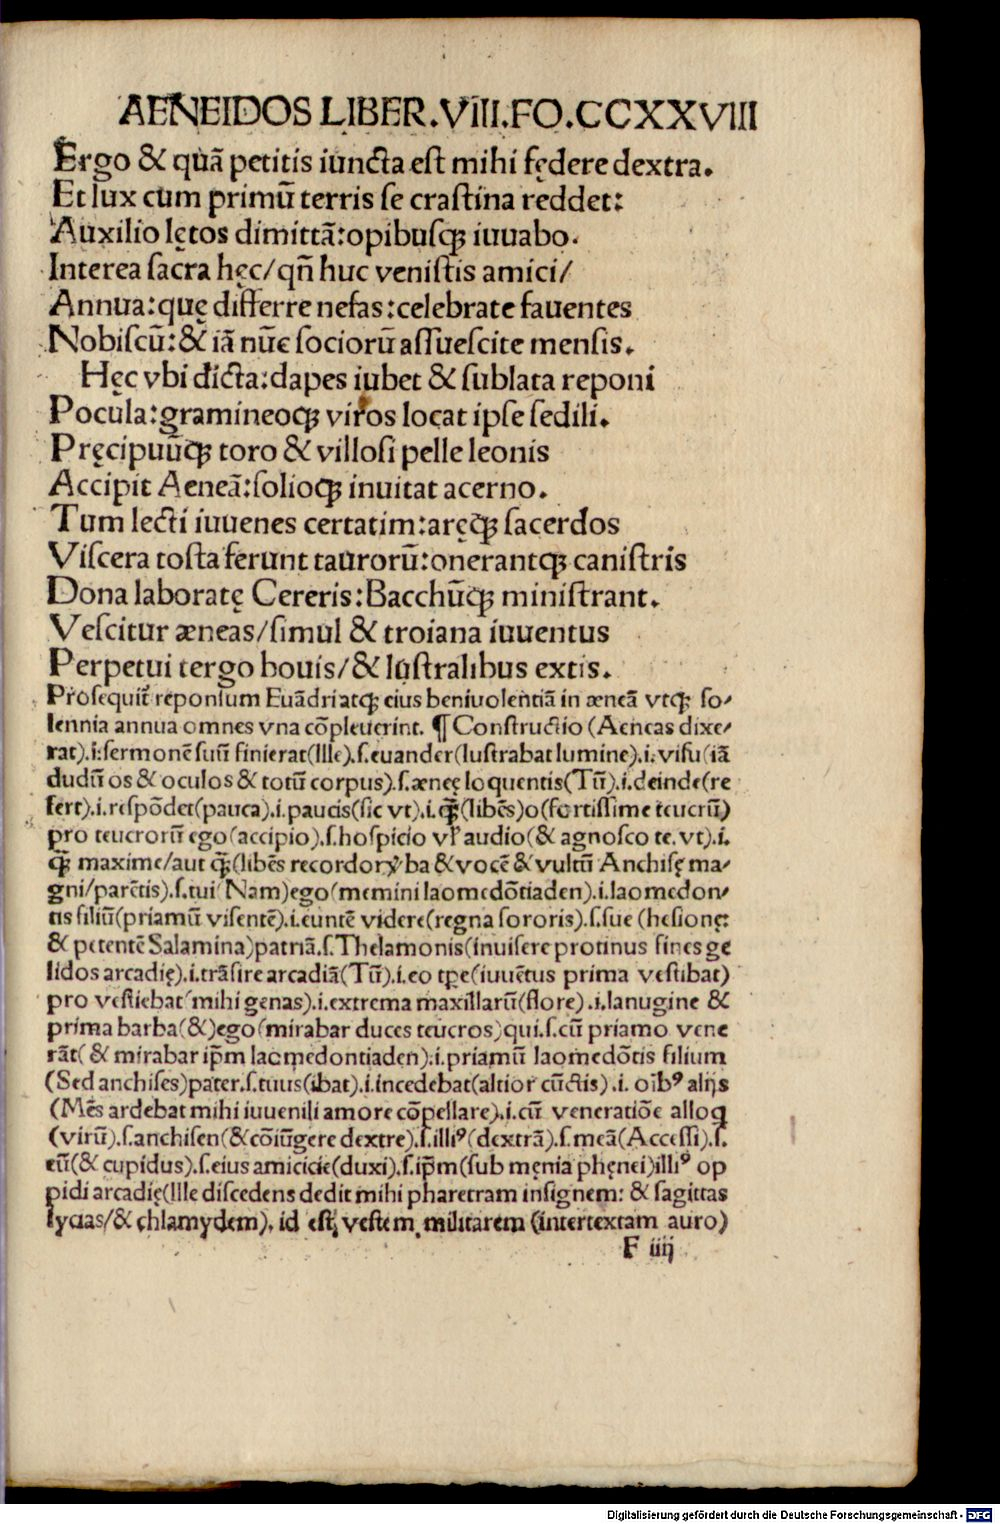 AENEIDOS LIBER.VIII.FO.CCXXVIII
Ergo & quã petitis iuncta est mihi fędere dextra.
Et lux cum primũ terris se crastina reddet:
Auxilio lętos dimittã:opibusq; iuuabo.
Interea sacra hęc/qñ huc venistis amici/
Annua:quę differre nefas:celebrate fauentes
Nobiscũ:& iã nũc sociorũ assuescite mensis.
Hęc vbi dicta:dapes iubet & sublata reponi
Pocula:gramineoq; viros locat ipse sedili.
Pręcipuũq; toro & villosi pelle leonis
Accipit Aeneã:solioq; inuitat acerno.
Tum lecti iuuenes certatim:aręq; sacerdos
Viscera tosta ferunt taurorũ:onerantq; canistris
Dona laboratę Cereris:Bacchũq; ministrant.
Vescitur æneas/simul & troiana iuuentus
Perpetui tergo bouis/& lustralibus extis.
Prosequit̃ reponsum Euãdri atq; eius beniuolentiã in æneã vtq; so/
lennia annua omnes vna cõpleuerint. ¶ Constructio (Aeneas dixe/
rat).i.sermonẽ suũ finierat(Ille).s.euander(lustrabat lumine).i.visu(iã
dudũ os & oculos & totũ corpus).s.ænęe loquentis(Tũ).i.deinde(re
fert).i.respõdet(pauca).i.paucis(sic vt).i.q̃(libẽs)o(fortissime teucrũ)
pro teucrorũ ego(accipio).s.hospicio vl̃ audio(& agnosco te.vt).i.
q̃ maxime/aut q̃(libẽs recordor ṽba & vocẽ & vultũ Anchisę ma/
gni/parẽtis).s.tui(Nam)ego(memini laomedõtiaden).i.laomedon/
tis filiũ(priamũ visentẽ).i.euntẽ videre(regna sororis).s.sue (hesionę:
& petentẽ Salamina)patriã.s.Thelamonis(inuisere protinus fines ge
lidos arcadię).i.trãsire arcadiã(Tũ).i.eo tp̃e(iuuẽtus prima vestibat)
pro vestiebat(mihi genas).i.extrema maxillarũ(flore).i.lanugine &
prima barba(&)ego(mirabar duces teucros)qui.s.cũ priamo vene
rãt(& mirabar ip̃m laomedontiaden).i.priamũ laomedõtis filium
(Sed anchises)pater.s.tuus(ibat).i.incedebat(altior cũctis).i. oĩbꝰ alijs
(Mẽs ardebat mihi iuuenili amore cõpellare).i.cũ veneratiõe alloq
(virũ).s.anchisen(&cõiũgere dextre).s.illiꝰ(dextrã).s.meã(Accessi).s.
eũ(& cupidus).s.eius amicicie(duxi).s.ip̃m(sub męnia phęnei)illiꝰ op
pidi arcadię(Ille discedens dedit mihi pharetram insignem: & sagittas
lycias/& chlamydem). id est vestem militarem (intertextam auro)
F iiij
Digitalisierung gefördert durch die Deutsche Forschungsgemeinschaft - DFG